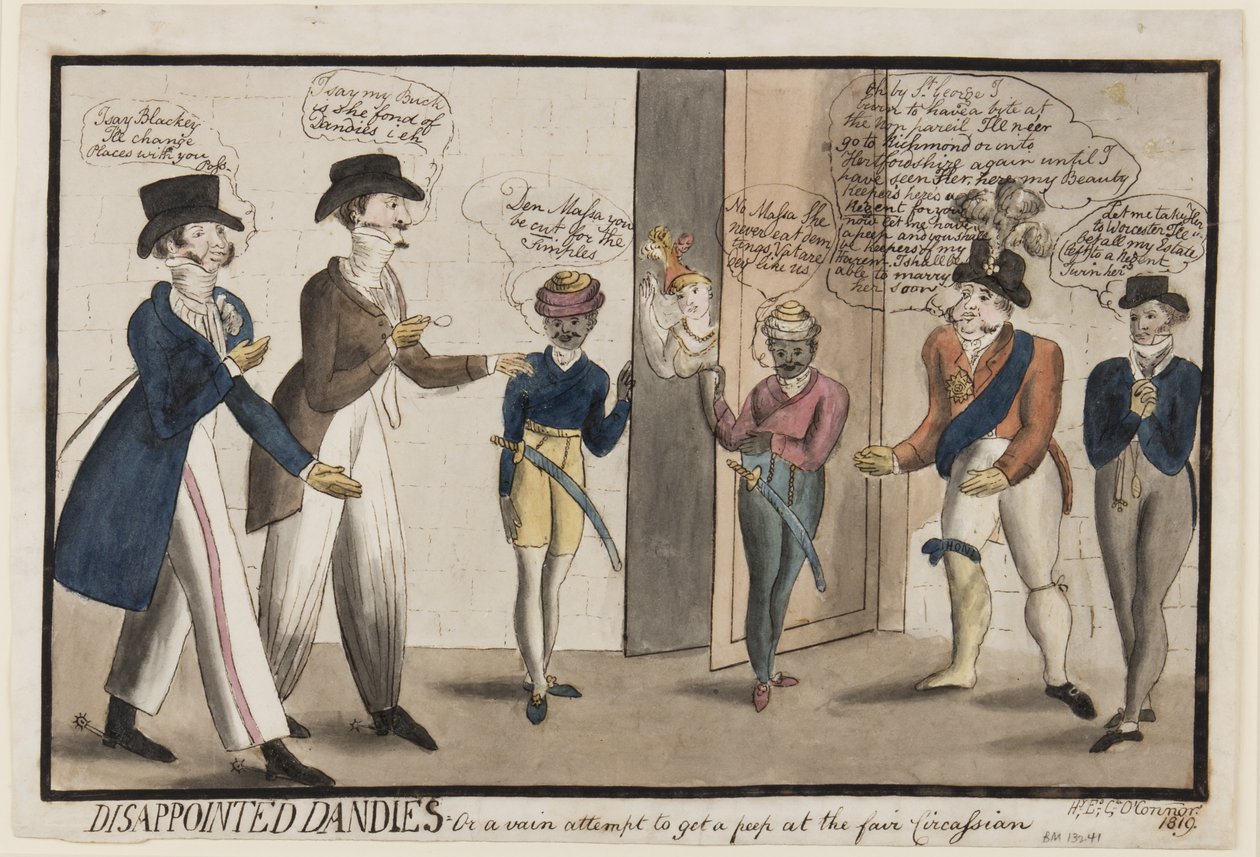 I say Blackey
I'll change
Places with you
Poss.
I say my Buck
is she fond of
Dandies ; eh
Den Maſsa you
be cut for the
Simples
No Maſsa She
never eat dem
tings, Vat are
dey like us
Oh by St. George I
burn to have a byte at
the Non pareil I'll ne'er
go to Richmond or into
Hertfordshire again until I
have seen Her, here my Beauty
Keepers here's a
Regent for you
now let me have
a peep and you shall
be keepers of my
Harem. I shall be
able to marry
her soon
Let me take her
to Worcester I'll
bet all my Estate
left to a Regent
I win her
HONI
DISAPPOINTED DANDIES = Or a vain attempt to get a peep at the fair Circaſsian
Hy. Ed. Cn. O'Connor.
1819.
BM 13241